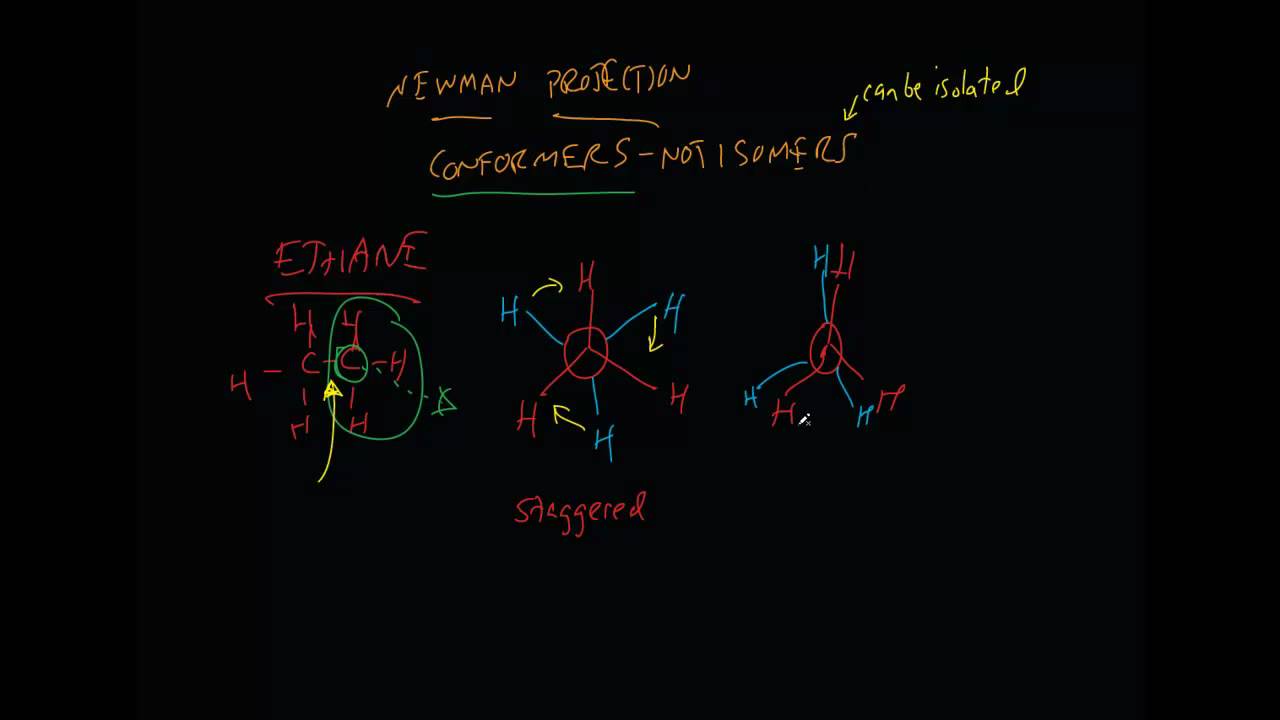 NEWMAN PROJECTION
can be isolated
CONFORMERS - NOT ISOMERS
ETHANE
H H
H - C - C - H
H H
H
H H
H H
H
staggered
H H
H H
H H